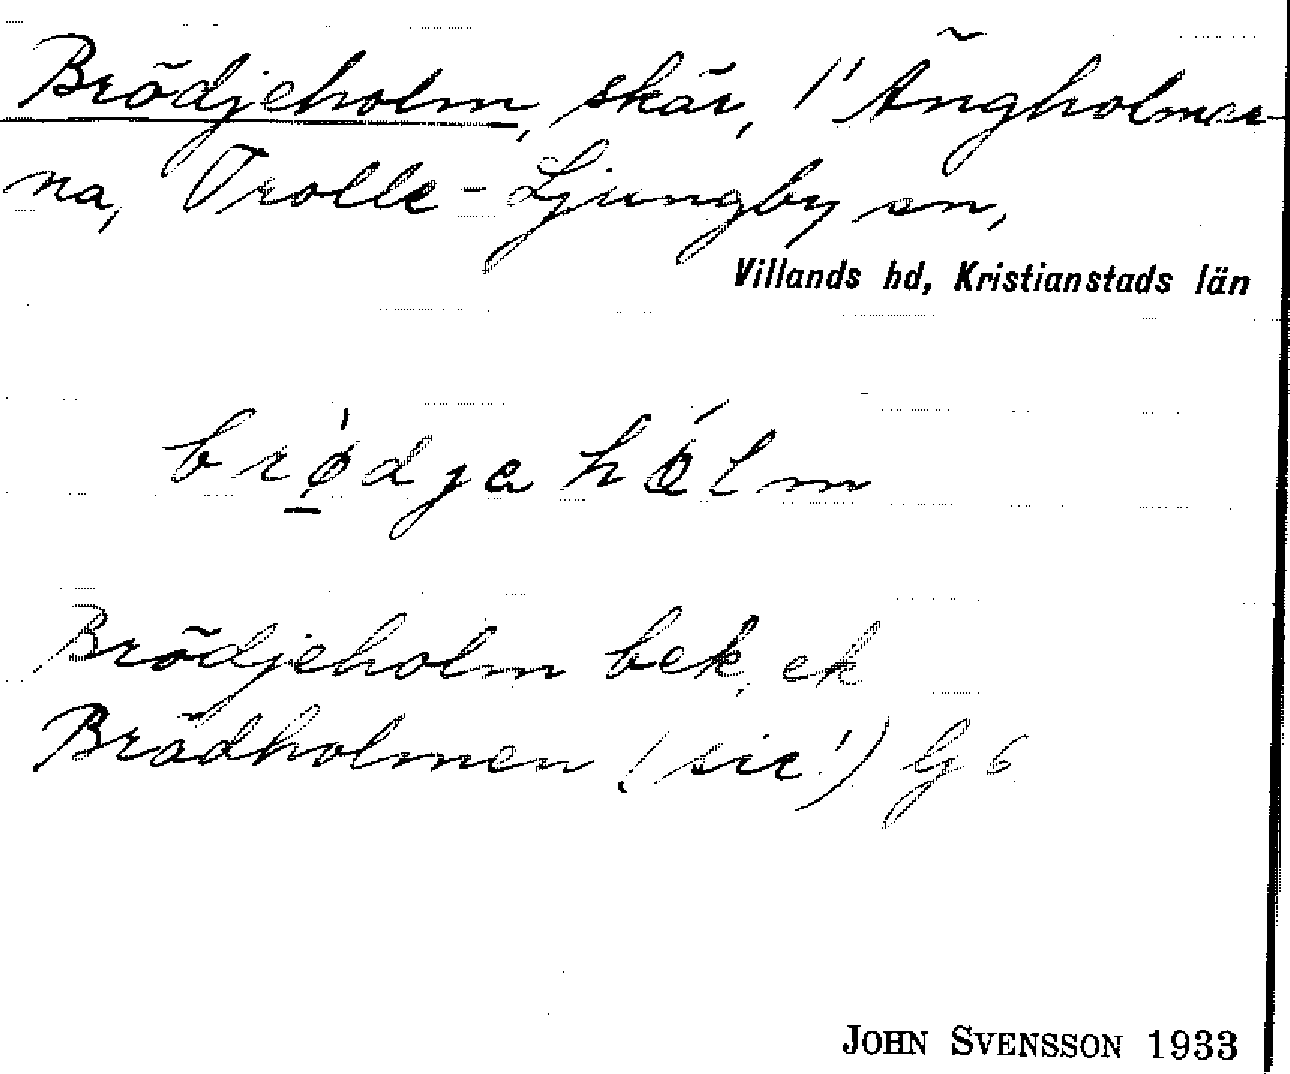 Brödjeholm, skär, i Ängholmar-
na, Trolle-Ljungby sn,
Villands hd, Kristianstads län
brødja hólm
Brödjeholm bek, ek
Brödholmen (sic!)
JOHN SVENSSON 1933